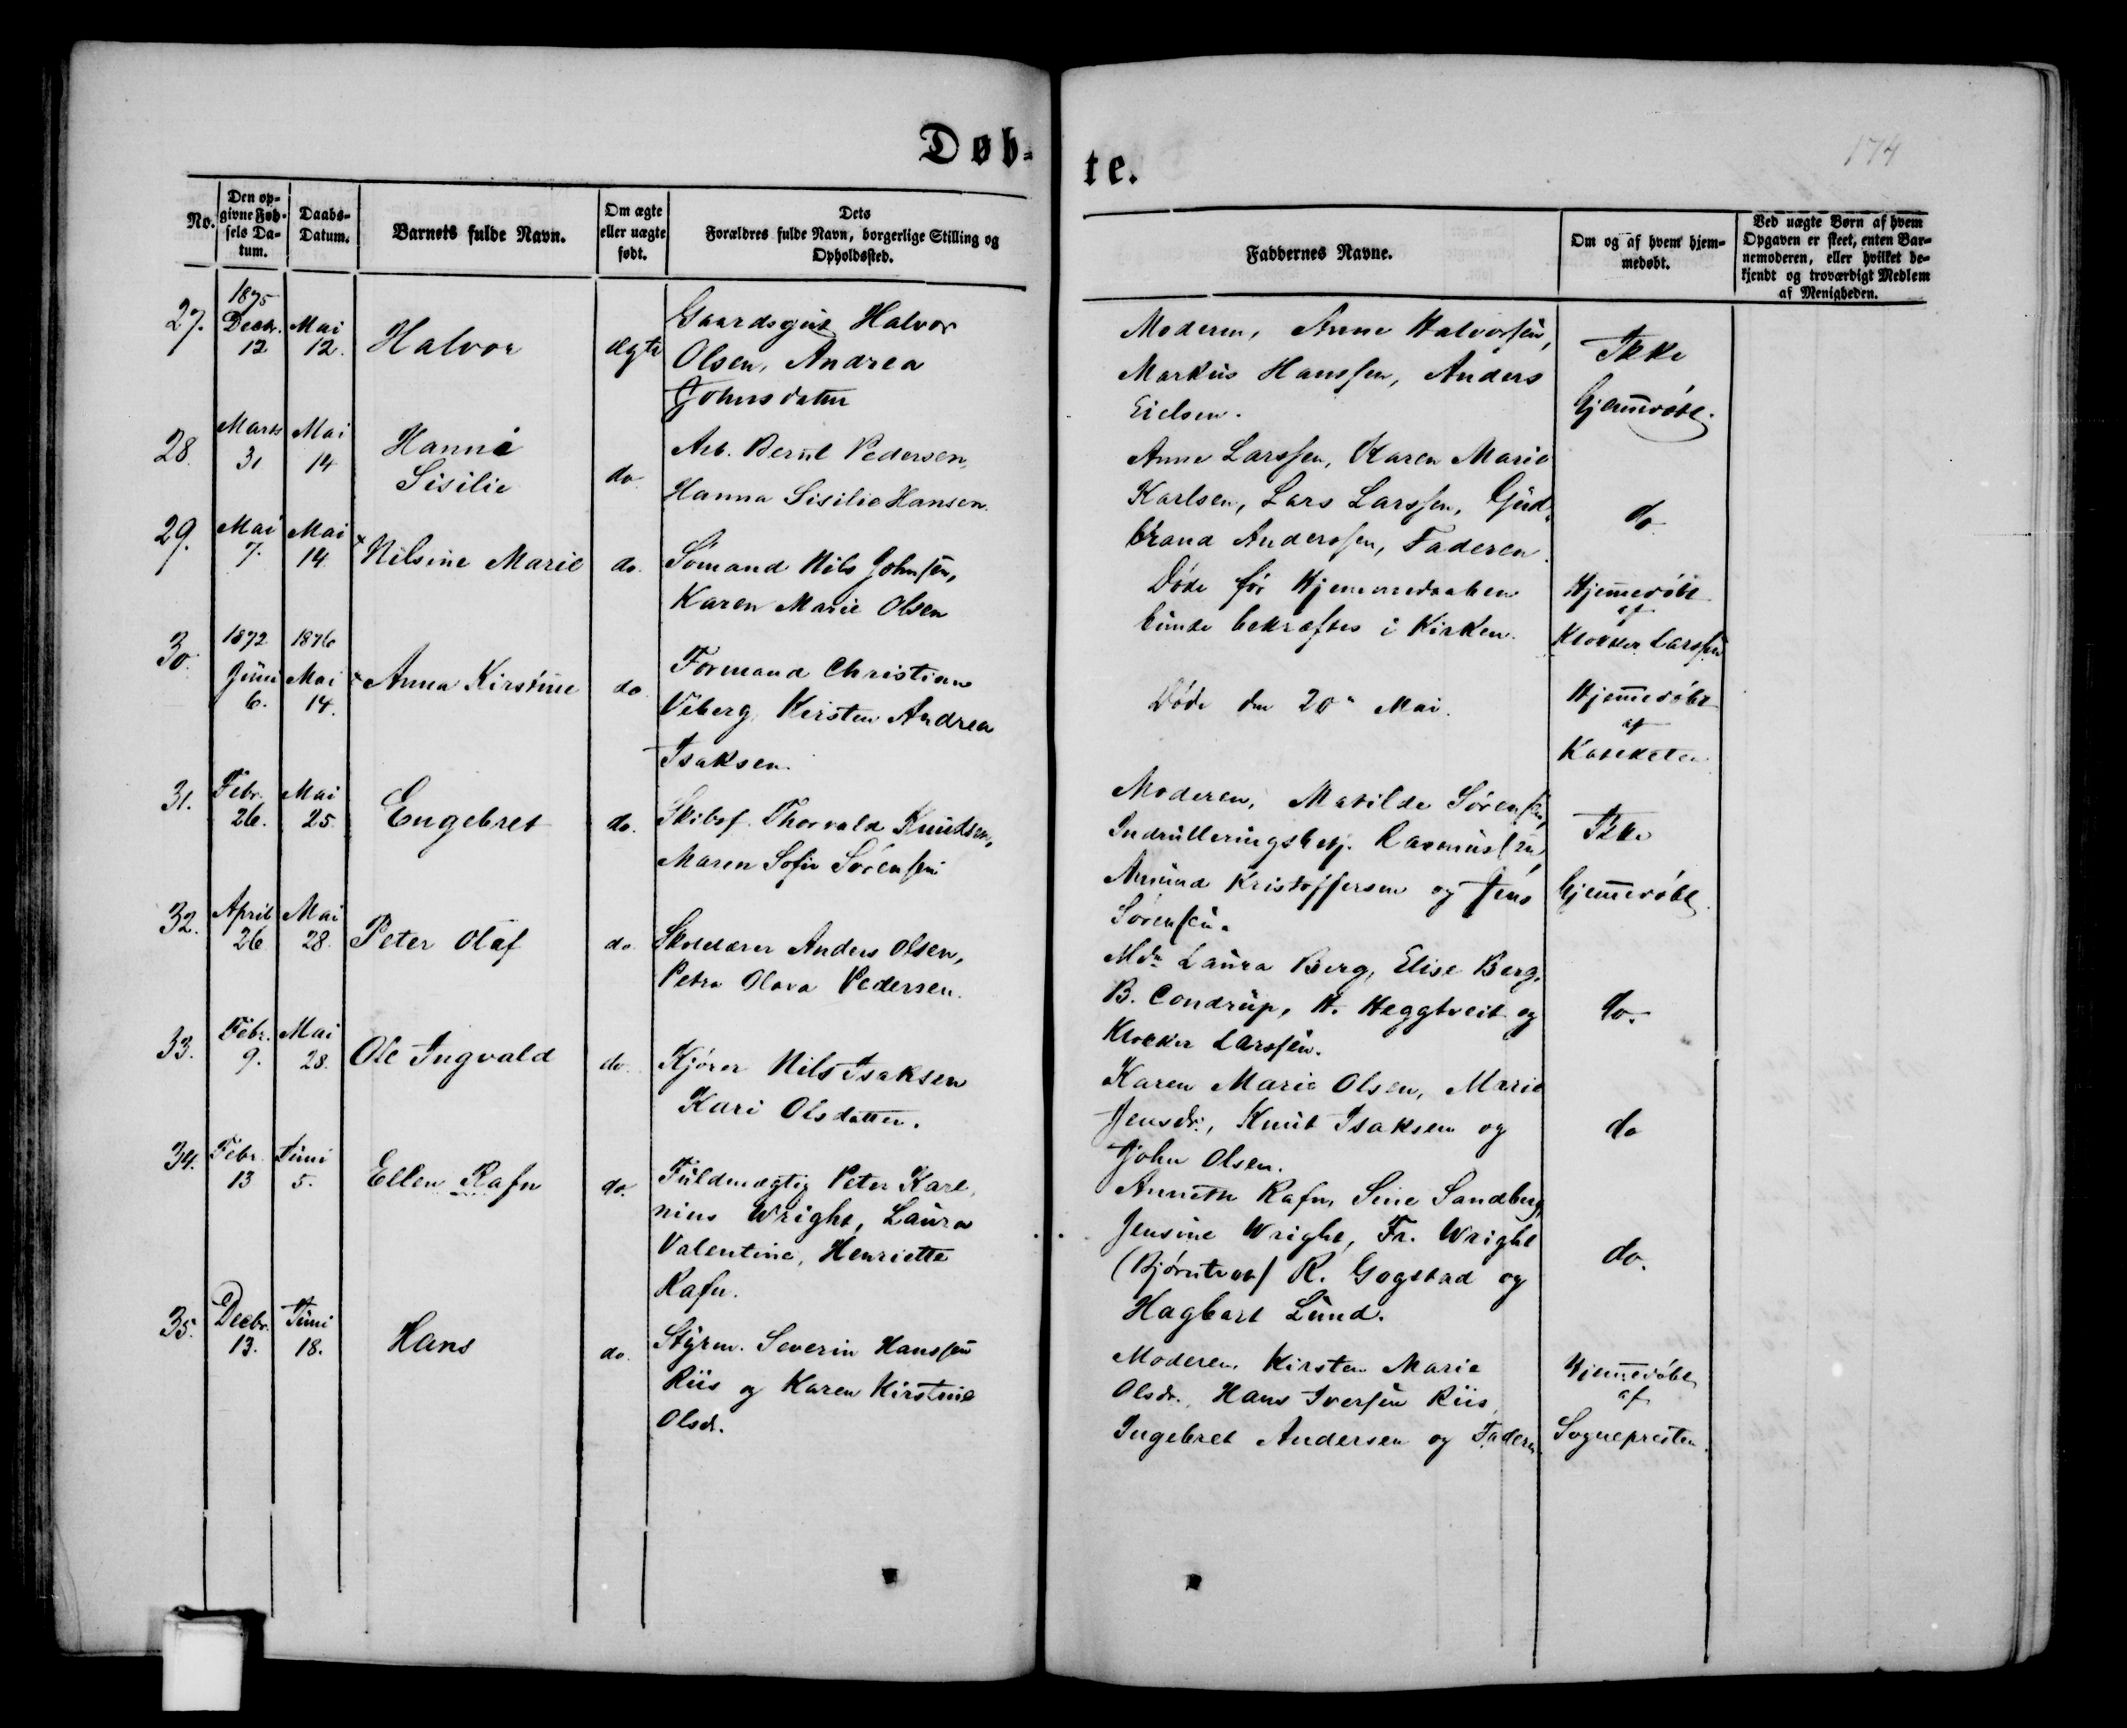 Døb=
te.
174
No.
Den op-
givne Fød-
sels Da-
tum.
Daabs-
Datum.
Barnets fulde Navn.
Om ægte
eller uægte
født.
Dets
Forældres fulde Navn, borgerlige Stilling og
Opholdssted.
Faddernes Navne.
Om og af hvem hjem-
medøbt.
Ved uægte Børn af hvem
Opgaven er skeet, enten Bar-
nemoderen, eller hvilket be-
kjendt og troværdigt Medlem
af Menigheden.
27.
1875
Decbr.
12
Mai
12.
Halvor
ægte
Gaardsgut Halvor
Olsen, Andrea
Johnsdatter
Moderen, Anne Halvorsen,
Markus Hanssen, Anders
Eielsen.
Ikke
Hjemmedøbt.
28.
Marts
31
Mai
14
Hanna
Sisilie
do.
Arb. Bernt Pedersen
Hanna Sisilie Hansen.
Anne Larssen, Karen Marie
Karlsen, Lars Larssen, Gud-
brand Anderssen, Faderen.
do.
29.
Mai
7.
Mai
14
+ Nilsine Marie
do.
Sømand Nils Johnsen,
Karen Marie Olsen
Døde før Hjemmedaaben
kunde bekræftes i Kirken.
Hjemmedøbt
af
Klokker Larssen
30.
1872
Juni
6.
1876
Mai
14.
+ Anna Kirstine
do
Formand Christian
Viberg, Kirsten Andrea
Isaksen.
Døde den 20de Mai.
Hjemmedøbt
af
Kateketen
31.
Febr.
26.
Mai
25
Engebret
do.
Skibsf. Thorvald Knudsen,
Maren Sofie Sørensen
Moderen, Matilde Sørensen,
Indrulleringsbetj. Rasmussen,
Amund Kristoffersen og Jens
Sørensen.
Ikke
Hjemmedøbt.
32.
April
26
Mai
28.
Peter Olaf
do.
Skolelærer Anders Olsen,
Petra Olava Pedersen.
Mdm Laura Berg, Elise Berg,
B. Condrup, H. Heggtveit og
Klokker Larssen.
do.
33.
Febr.
9.
Mai
28.
Ole Ingvald
do.
Kjører Nils Isaksen
Kari Olsdatter.
Karen Marie Olsen, Marie
Jensdr., Knut Isaksen og
John Olsen.
do
34.
Febr.
13
Juni
5.
Ellen Rafn
do.
Fuldmægtig Peter Kare-
nius Wright, Laura
Valentine, Henriette
Rafn.
Annette Rafn, Sine Sandberg,
Jensine Wright, Fr. Wright
R. Gogstad og
Hagbart Lund.
do.
35.
Decbr.
13.
Juni
18.
Hans
do.
Styrm. Severin Hanssen
Riis og Karen Kirstine
Olsdr.
Moderen, Kirsten Marie
Olsdr., Hans Iversen Riis,
Ingebret Andersen og Faderen.
Hjemmedøbt
af
Sognepresten.